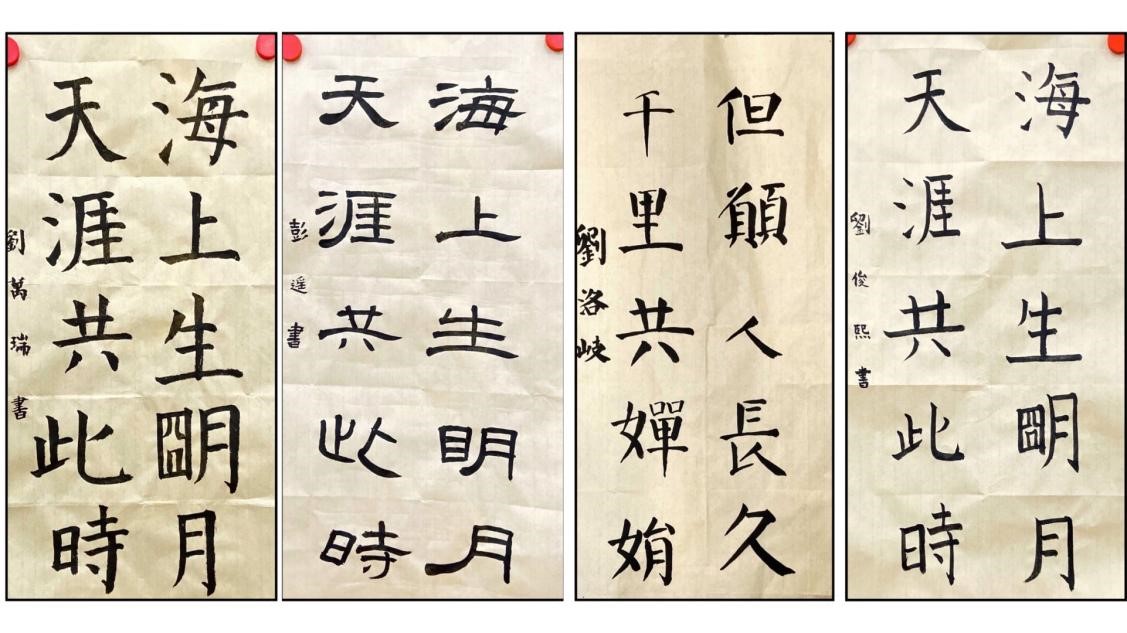 海上生朙月
天涯共此時
劉萬瑞書
海上生眀月
天涯共此時
彭遥書
但願人長久
千里共嬋娟
劉洛岐
海上生朙月
天涯共此時
劉俊熙書